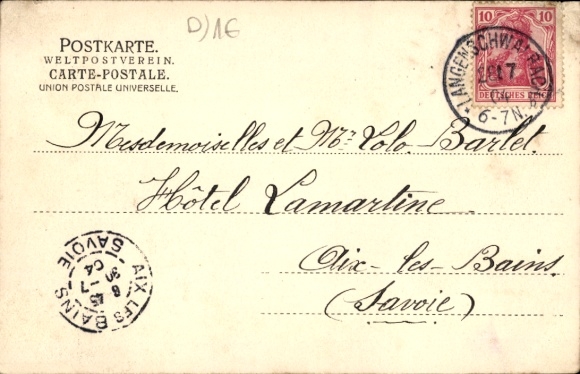 D)16
POSTKARTE.
WELTPOSTVEREIN.
CARTE-POSTALE.
UNION POSTALE UNIVERSELLE.
10 10
DEUTSCHES REICH
LANGENSCHWALBACH
6-7N.
Mesdemoiselles et Mr. Lolo Barlet
Hôtel Lamartine
Aix-les-Bains.
(Savoie)
AIX-LES-BAINS
SAVOIE
30 -7
04